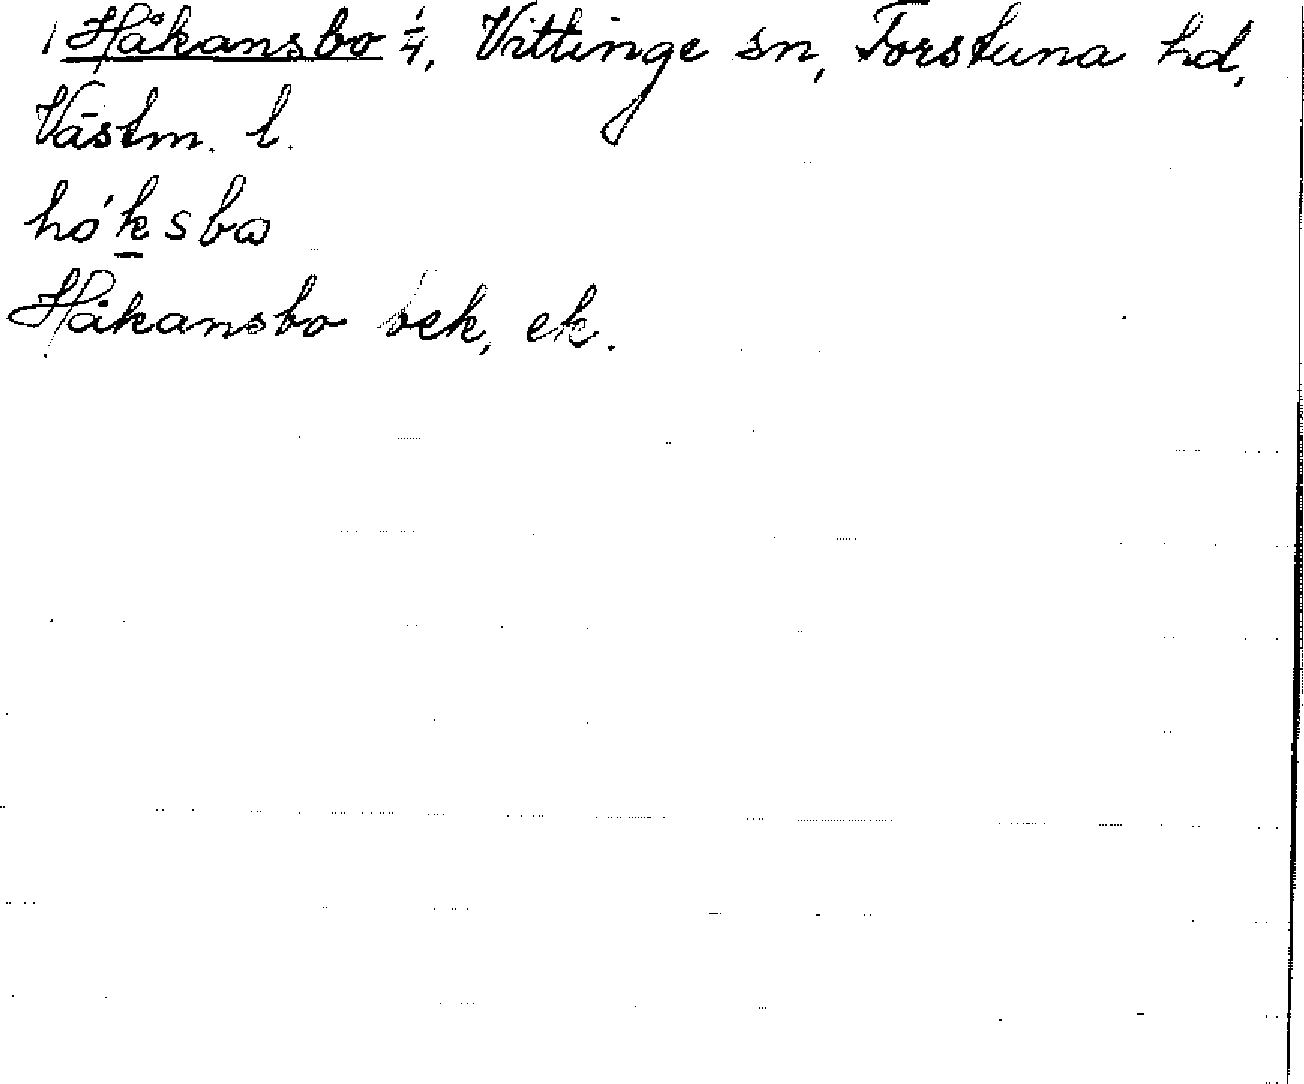 1 Håkansbo 1/4, Vittinge sn, Torstuna hd,
Västm. l.
hó'ksbω
Håkansbo bek, ek.